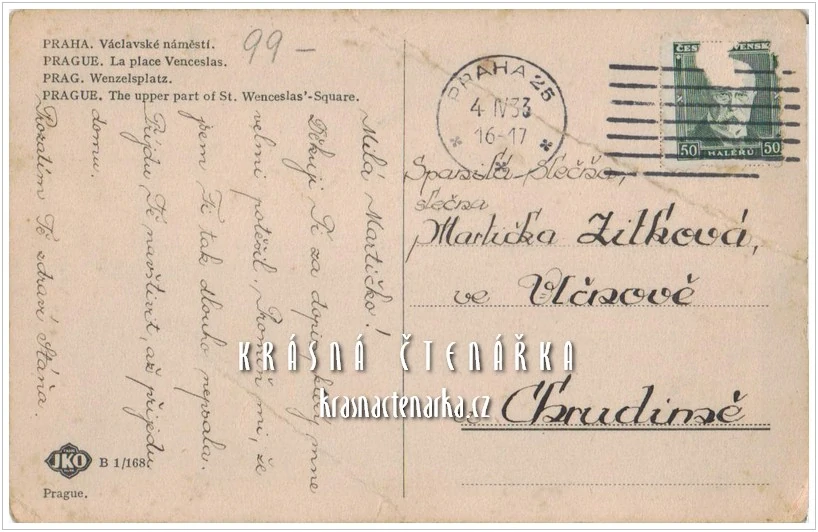 PRAHA. Václavské náměstí.
PRAGUE. La place Venceslas.
PRAG. Wenzelsplatz.
PRAGUE. The upper part of St. Wenceslas'-Square.
99-
Milá Martičko!
Děkuji Ti za dopis, který mne
velmi potěšil. Promiň mi, že
jsem Ti tak dlouho nepsala.
Přijdu Tě navštívit, až přijedu
domu.
Prozatím Tě zdraví Stáňa.
JKO
B 1/168
Prague.
PRAHA 25
4 IV 33
16-17
ČES VENSK
50 HALÉŘŮ 50
Slečna,
slečna
Martička Zitková,
ve Vlčnově
Chrudimě
KRÁSNÁ ČTENÁŘKA
krasnactenarka.cz